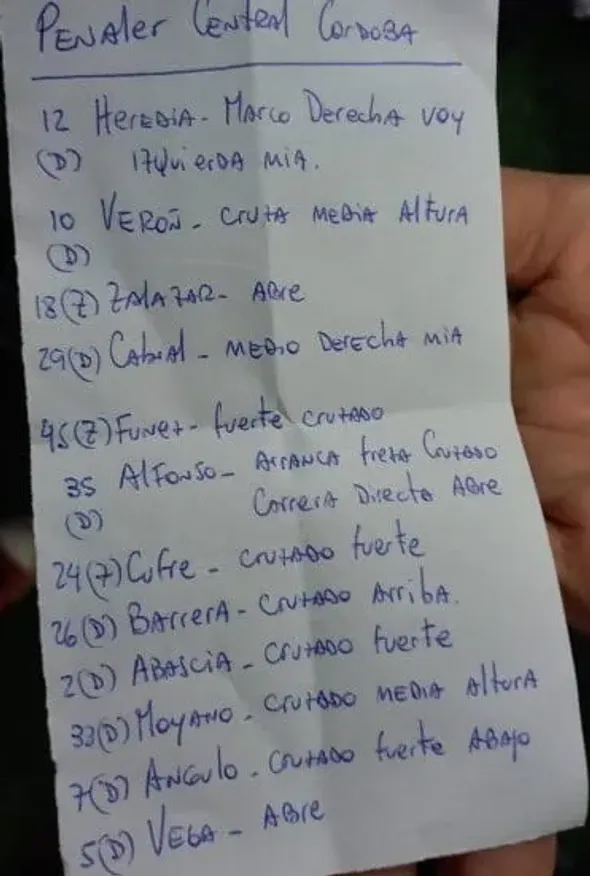 PENALER CENTRAL CORDOBA
12 HEREDIA - MARCO DERECHA VOY
(D) IZQUIERDA MIA.
10 VERON - CRUZA MEDIA ALTURA
(D)
18(Z) ZALAZAR - ABRE
29(D) CABRAL - MEDIO DERECHA MIA
45(Z) FUNEZ - fuerte CRUZADO
35 ALFONSO - ARRANCA freza CRUZADO
(D) CARRERA DIRECTA ABRE
24(Z) CUFRE - CRUZADO fuerte
26(D) BARRERA - CRUZADO ARRIBA.
2(D) ABASCIA - CRUZADO fuerte
33(D) MOYANO - CRUZADO MEDIA ALTURA
7(D) ANGULO - CRUZADO fuerte ABAJO
5(D) VEGA - ABRE